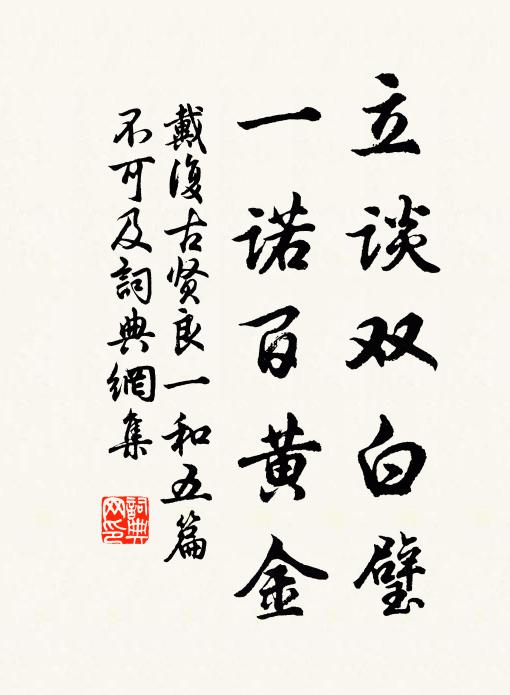 立谈双白璧
一诺百黄金
戴復古贤良一和五篇
不可及詞典網集
詞典
网印